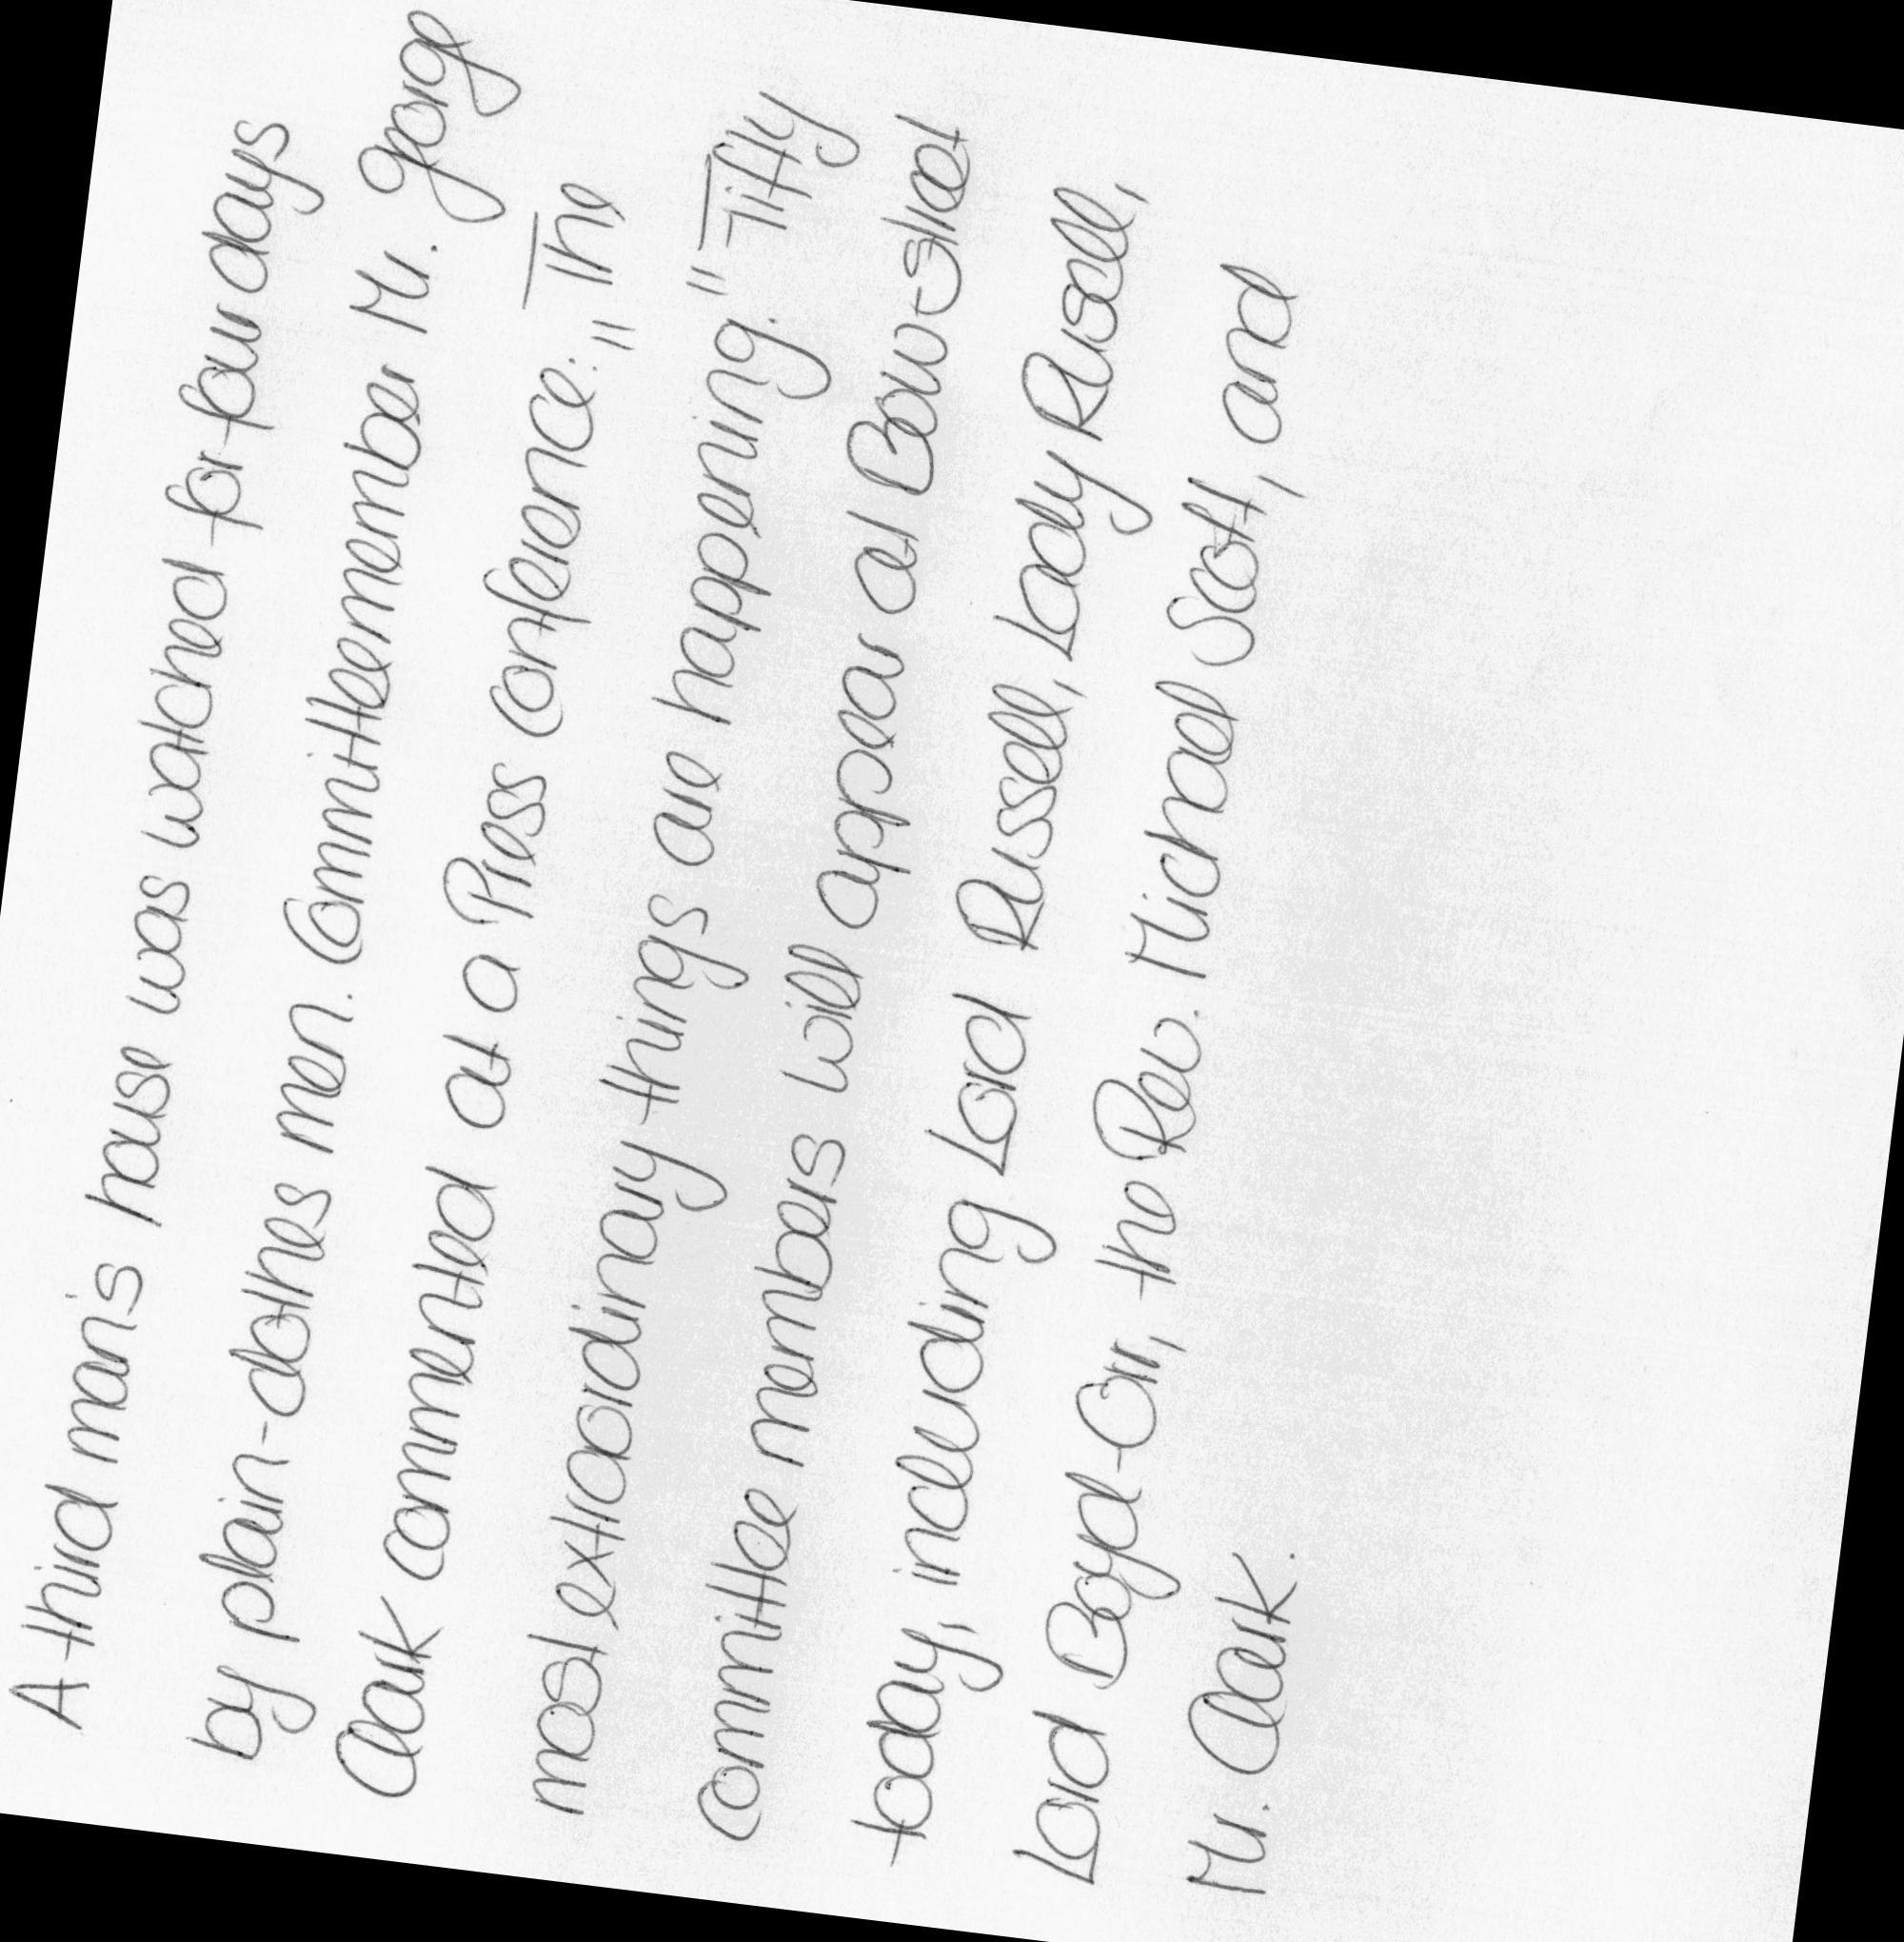 A third man's house was watched for four days
by plain-clothes men. Committeemember Mr. George
Clark commented at a Press conference: "The
most extraordinary things are happening." Fifty
committee members will appear at Bow-street
today, including Lord Russell, Lady Russell,
Lord Boyd-Orr, the Rev. Michael Scott, and
Mr. Clark.